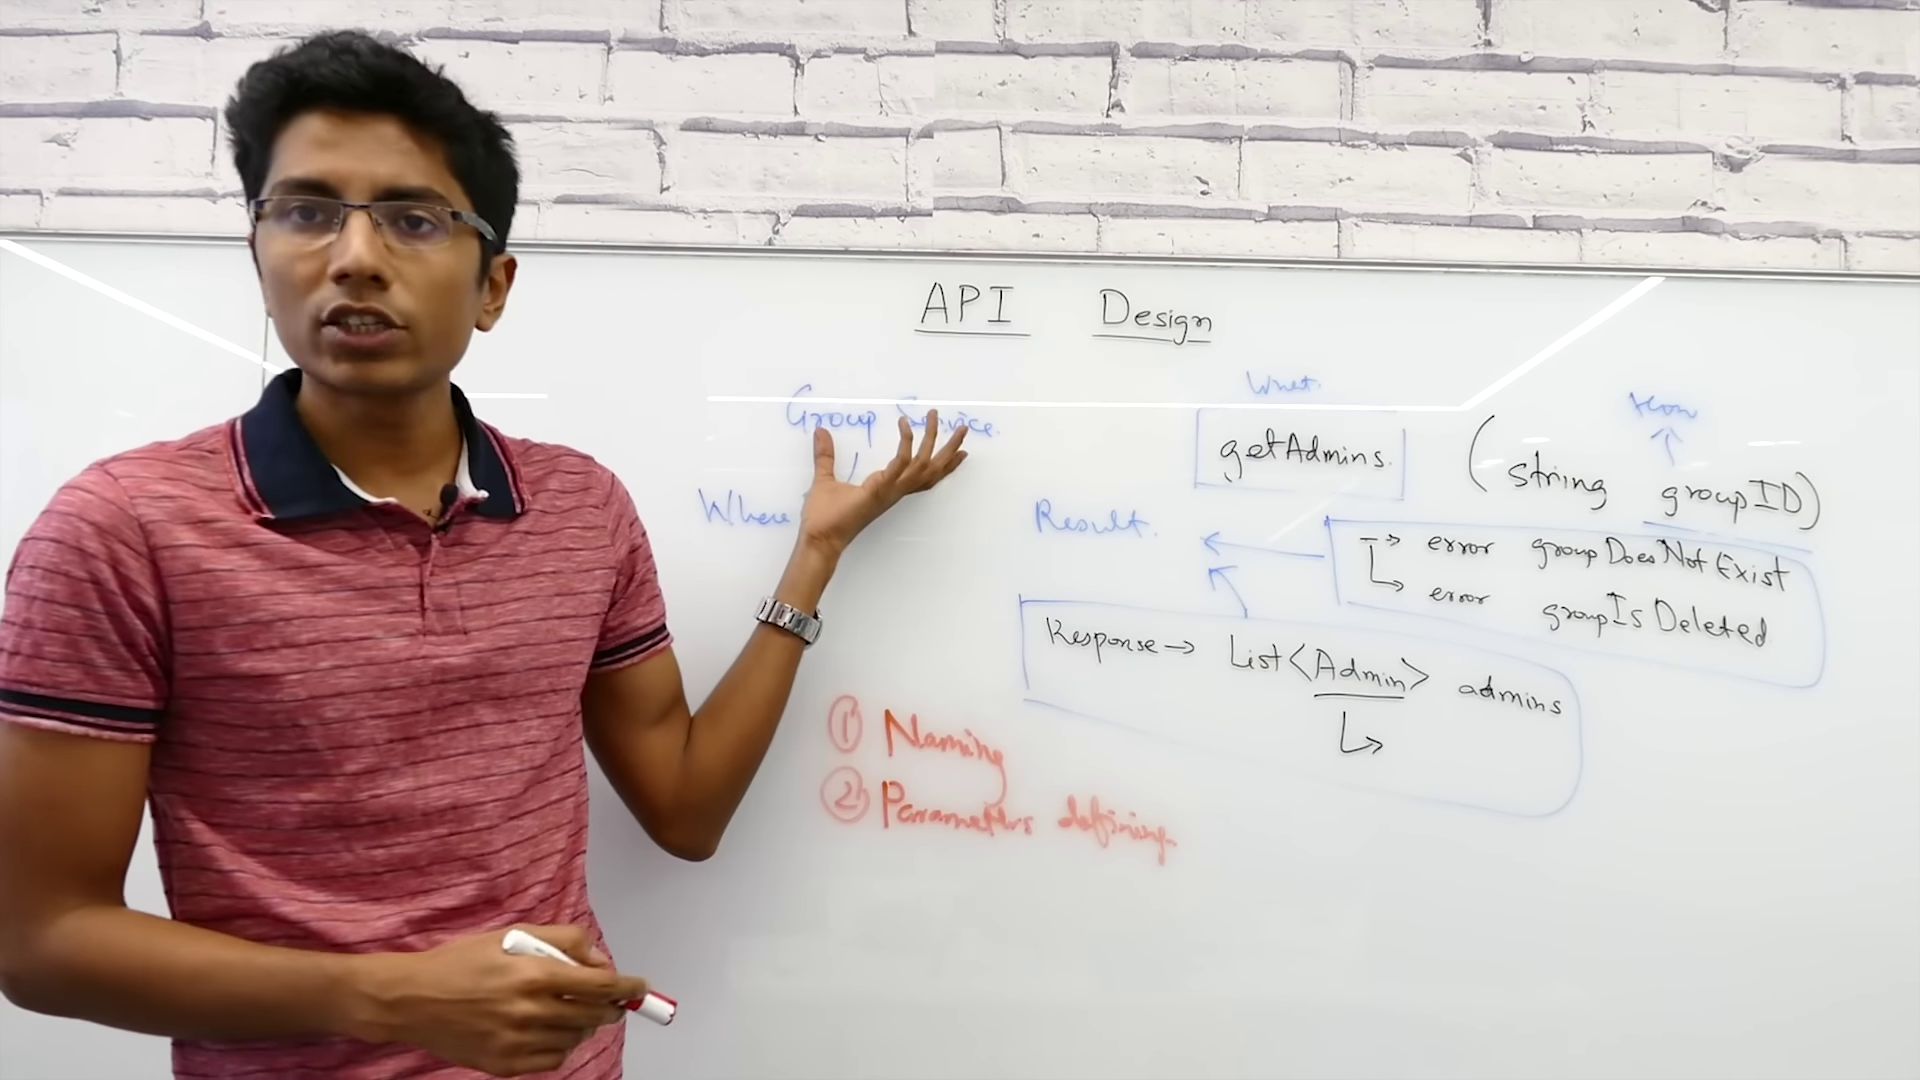 API Design
Group Service.
What.
How
getAdmins.
(string groupID)
Where
Result.
→ error groupDoesNotExist
↳ error groupIsDeleted
Response → List<Admin> admins
↳
① Naming
② Parameters defining.